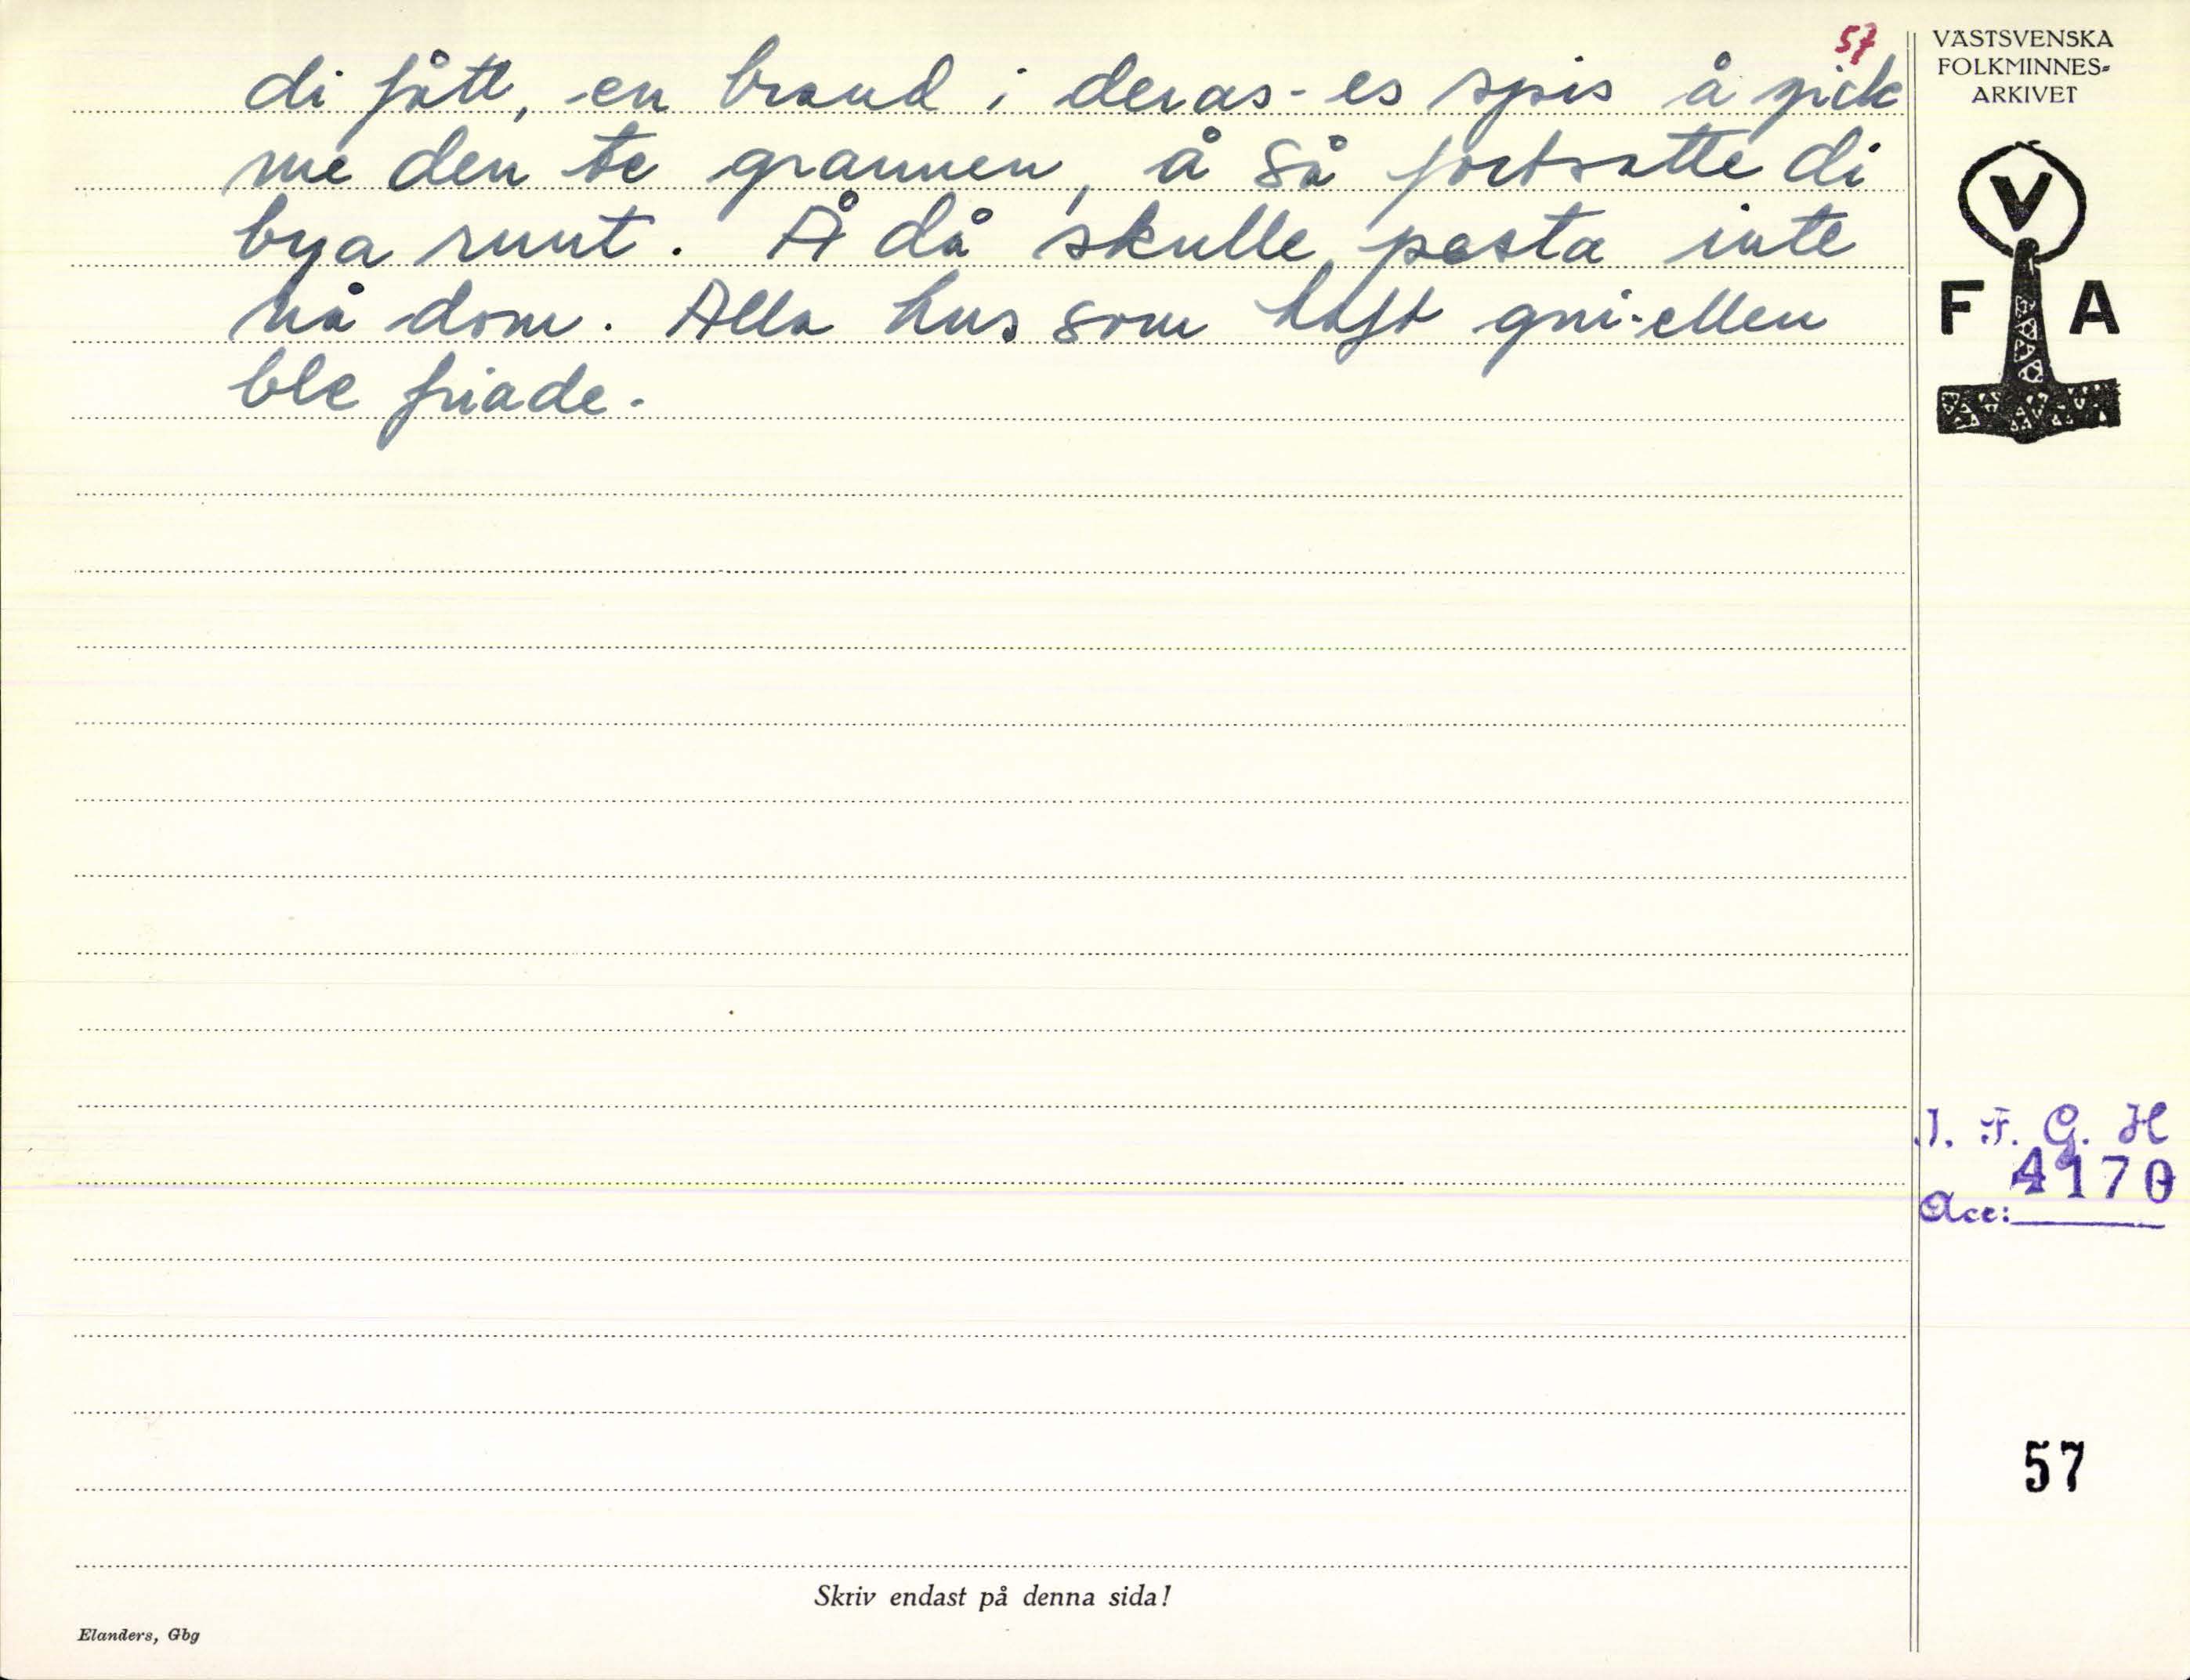 57
di fått, en brand i deras-es spis å gick
me den te grannen, å så fortsatte di
bya runt. Å då skulle pesta inte
nå dom. Alla hus som haft gni-ellen
ble friade.
VÄSTSVENSKA
FOLKMINNES-
ARKIVET
V
F A
I. F. G. H
4170
Acc:
57
Skriv endast på denna sida!
Elanders, Gbg